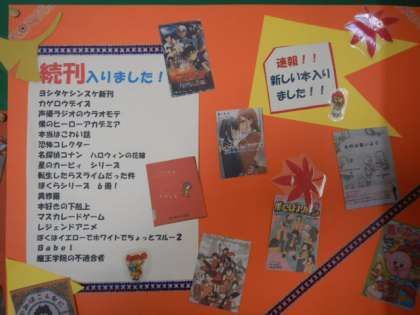 続刊入りました！
ヨシタケシンスケ新刊
カゲロウデイズ
声優ラジオのウラオモテ
僕のヒーローアカデミア
本当はこわい話
恐怖コレクター
名探偵コナン　ハロウィンの花嫁
星のカービィ　シリーズ
転生したらスライムだった件
ぼくらシリーズ　６冊！
異修羅
本好きの下剋上
マスカレードゲーム
レジェンドアニメ
ぼくはイエローでホワイトでちょっとブルー２
Ｂａｂｅｌ
魔王学院の不適合者
速報！！
新しい本入り
ました！！